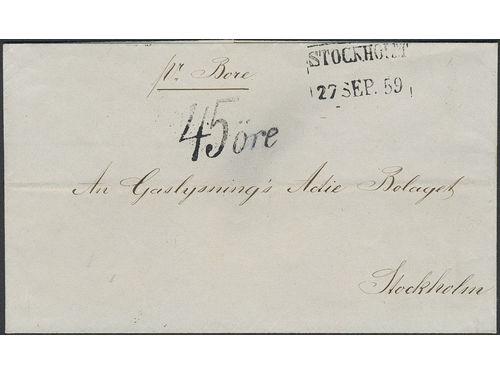 pr Bore
STOCKHOLM
27 SEP. 59
45 öre
An Gaslysning's Actie Bolaget
Stockholm